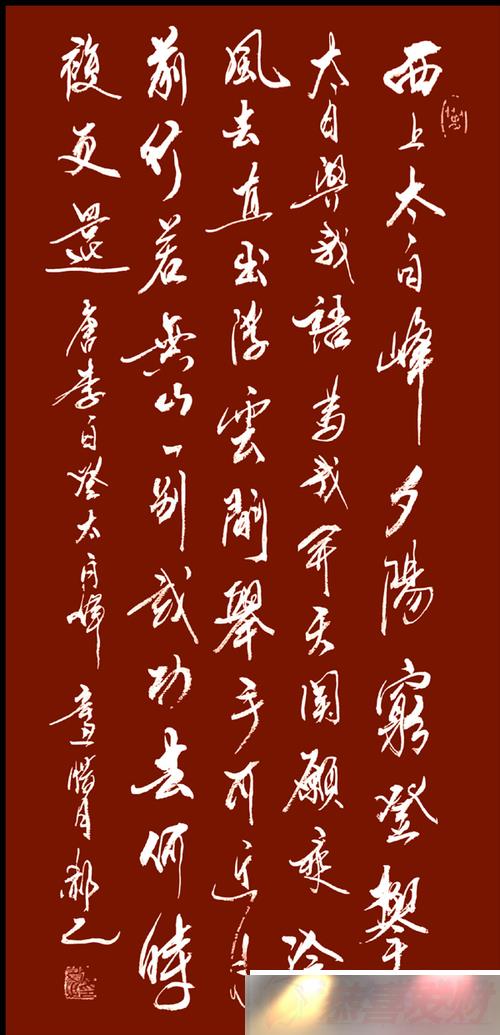 西上太白峰夕陽窮登攀
太白與我語為我開天關願乘泠
風去直出浮雲間舉手可近月
前行若無山一別武功去何時
複更還 唐李白登太白峰 辛丑臘月